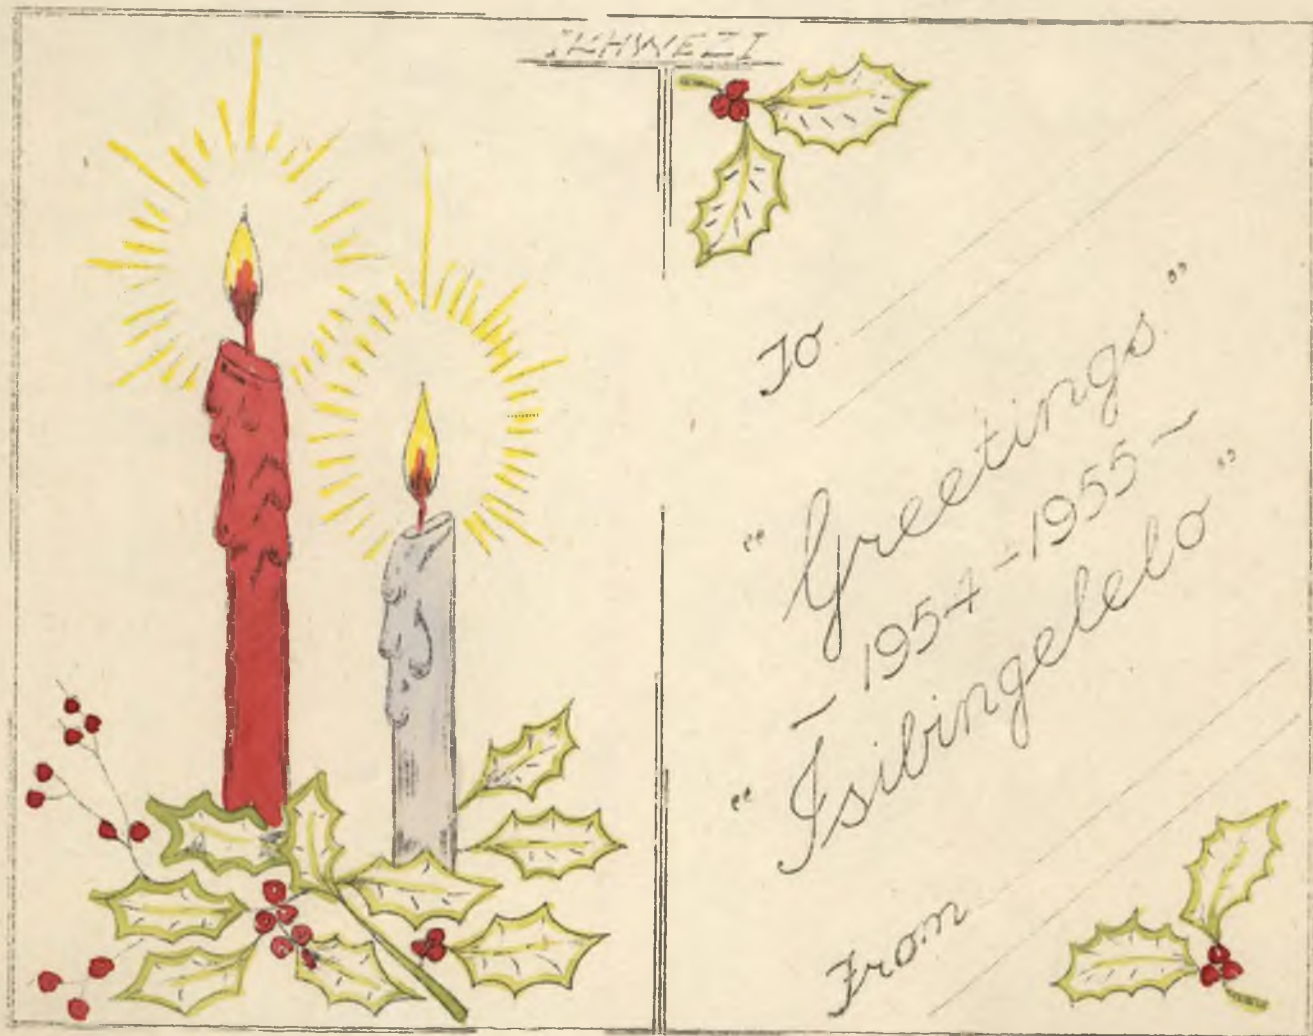 IKHWEZI
To
"Greetings"
- 1954 - 1955 -
"Isibingelelo"
From